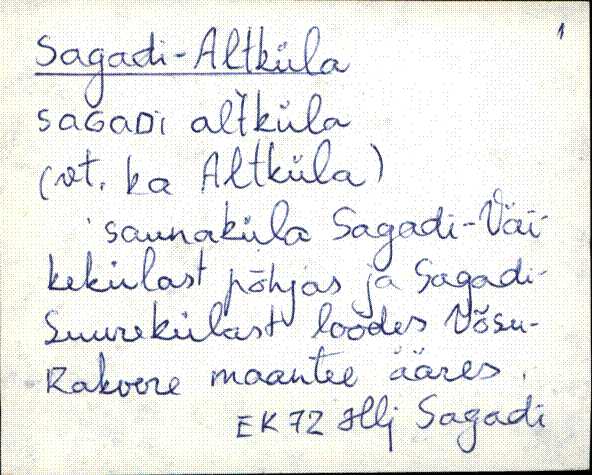 1
Sagadi-Altküla
SAGADI alt̆küla
(vt. ka Altküla)
saunaküla Sagadi-Väi-
kekülast põhjas ja Sagadi-
Suurekülast loodes Võsu-
Rakvere maantee ääres.
EK 72 Hlj Sagadi